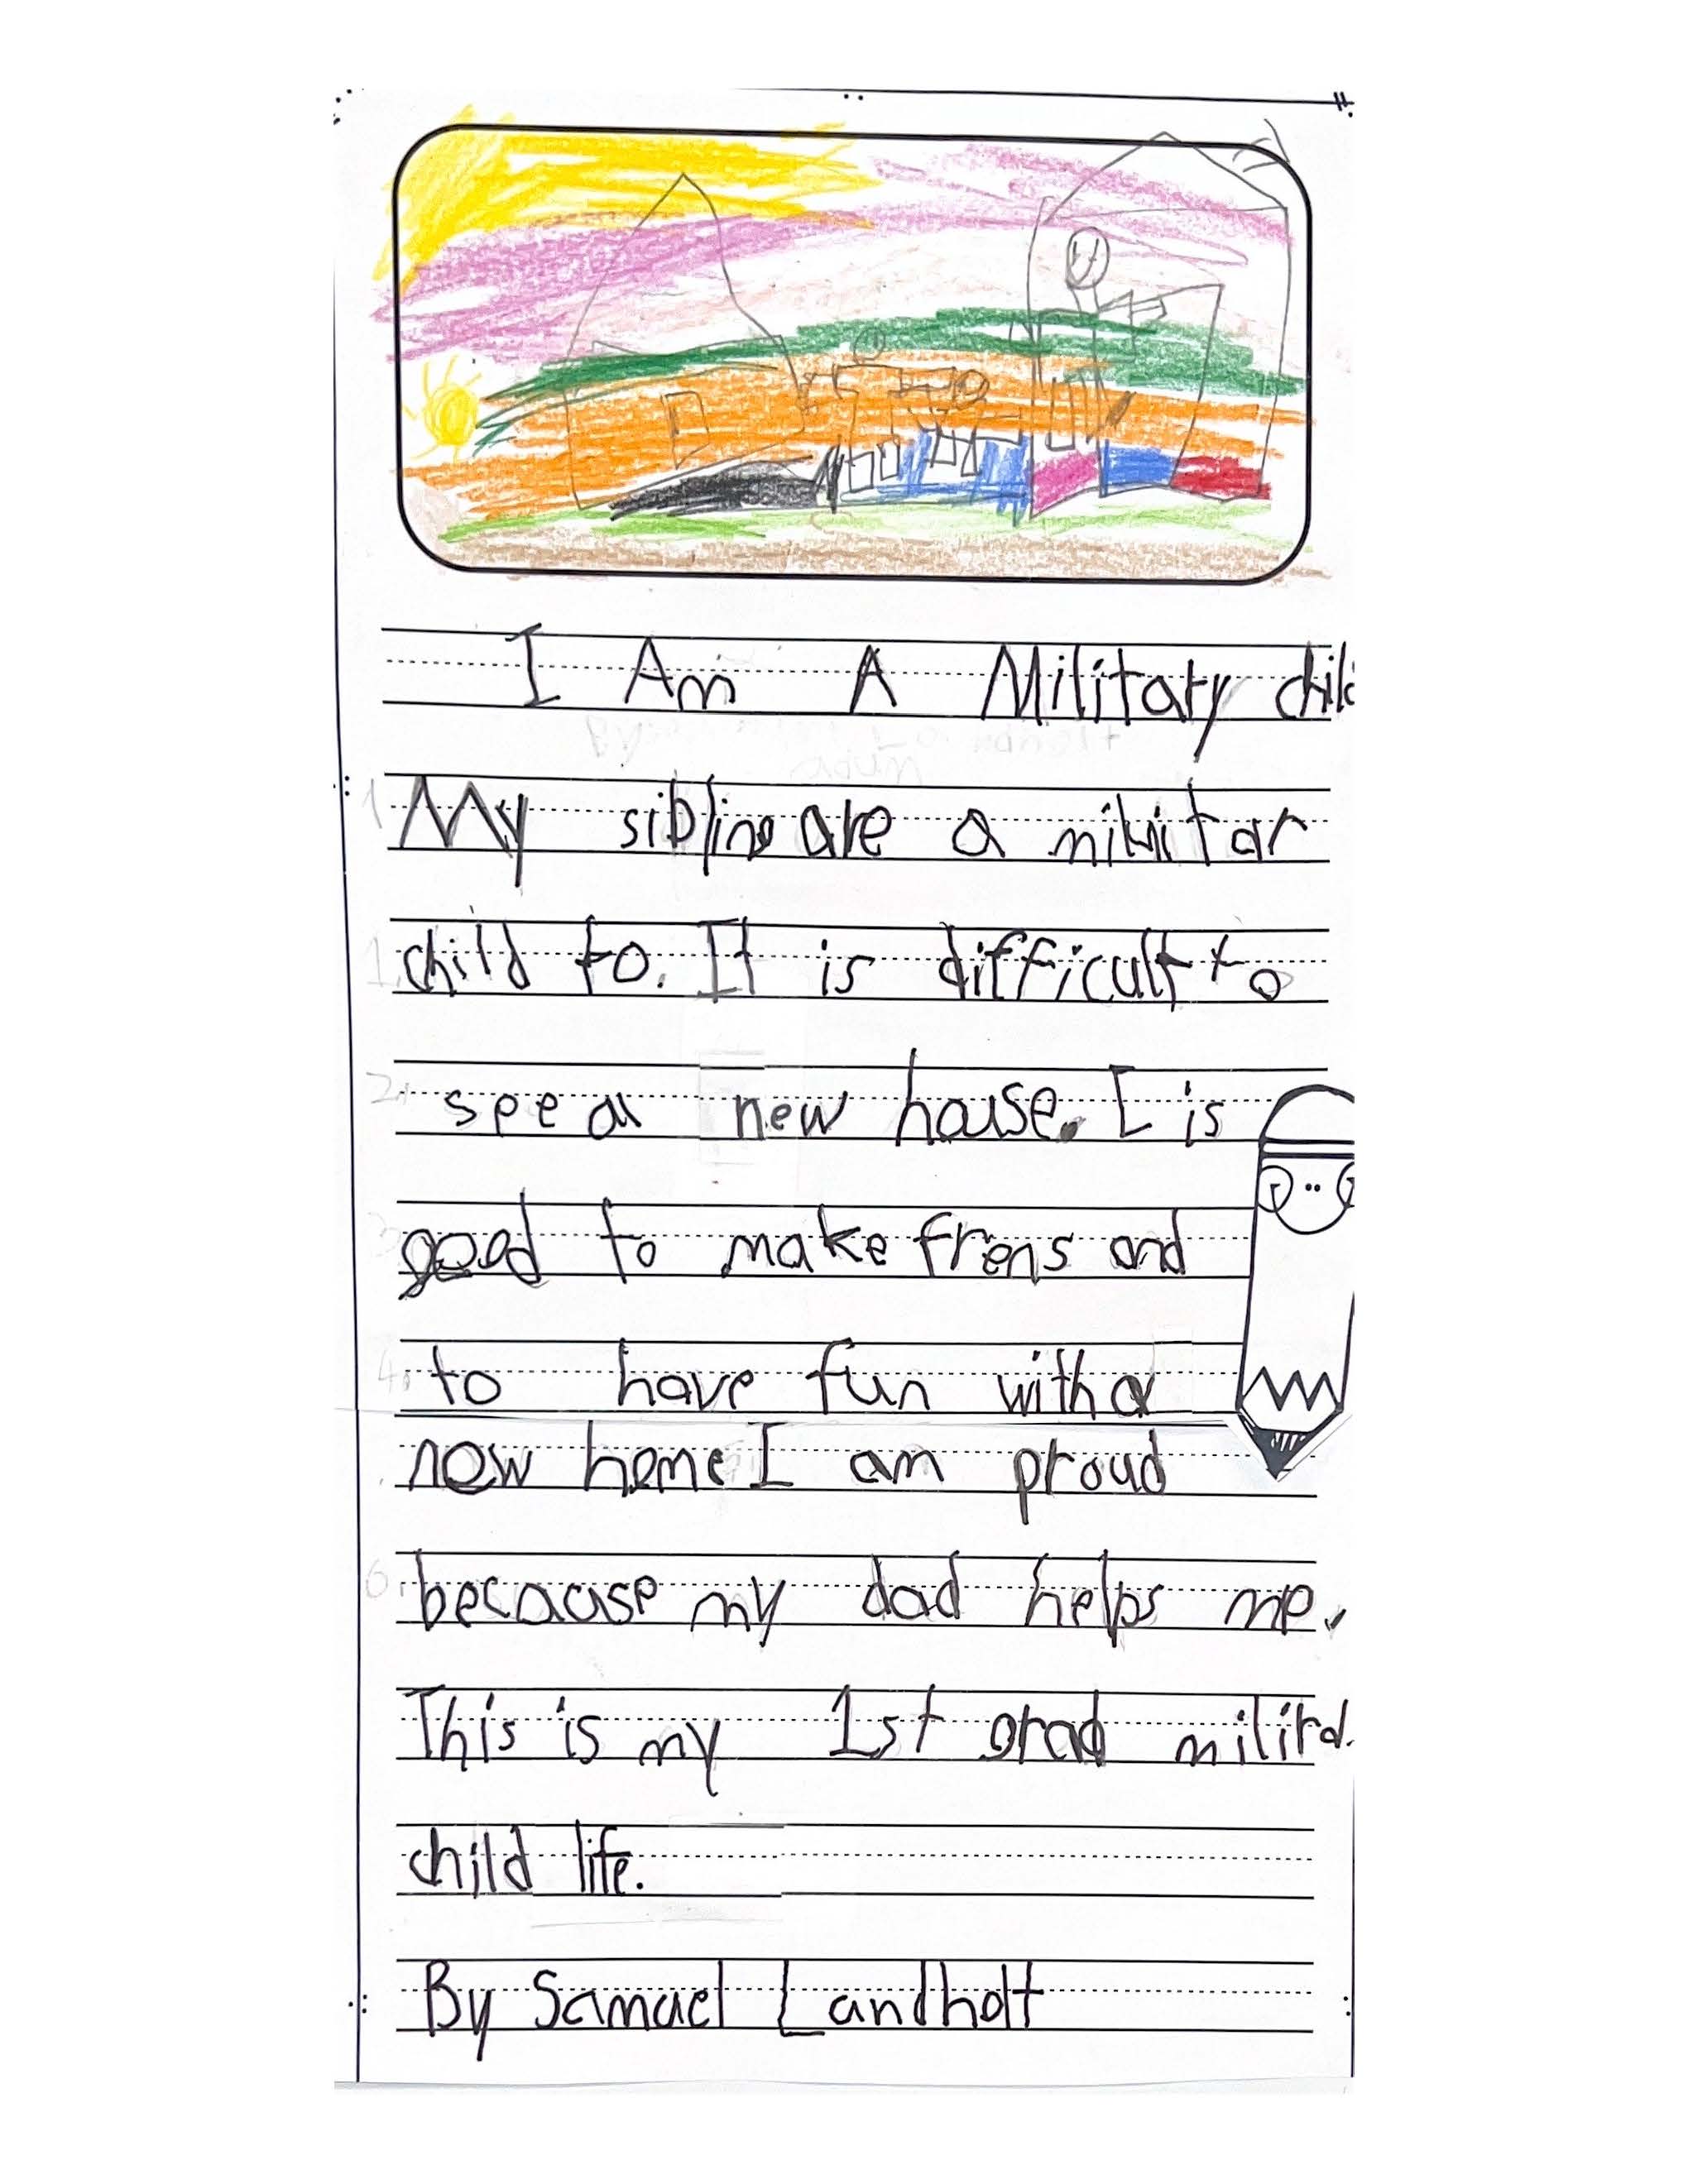 I Am A Military child
My sibling are a militar
child to. It is difficult to
spe a new house. I is
good to make frens and
to have fun with a
now home I am proud
because my dad helps me.
This is my 1st grad milit
child life.
By Samuel Landholt